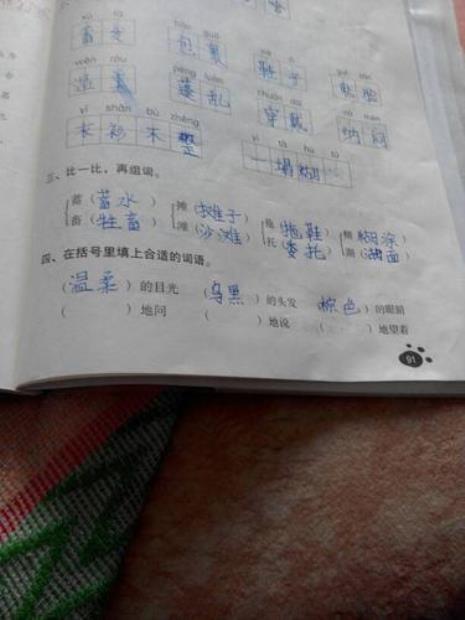 包裹
鞋子
蓬乱
穿戴
纳闷
yī shān bù zhěng
衣衫不整
yī tā hú tú
一塌糊
三、比一比，再组词。
蓄（蓄水） 摊（摊子） 拖（拖鞋） 糊（糊涂）
畜（牲畜） 滩（沙滩） 托（委托） 湖（湖面）
四、在括号里填上合适的词语。
（温柔）的目光 （乌黑）的头发 （棕色）的眼睛
（ ）地问 （ ）地说 （ ）地望着
91